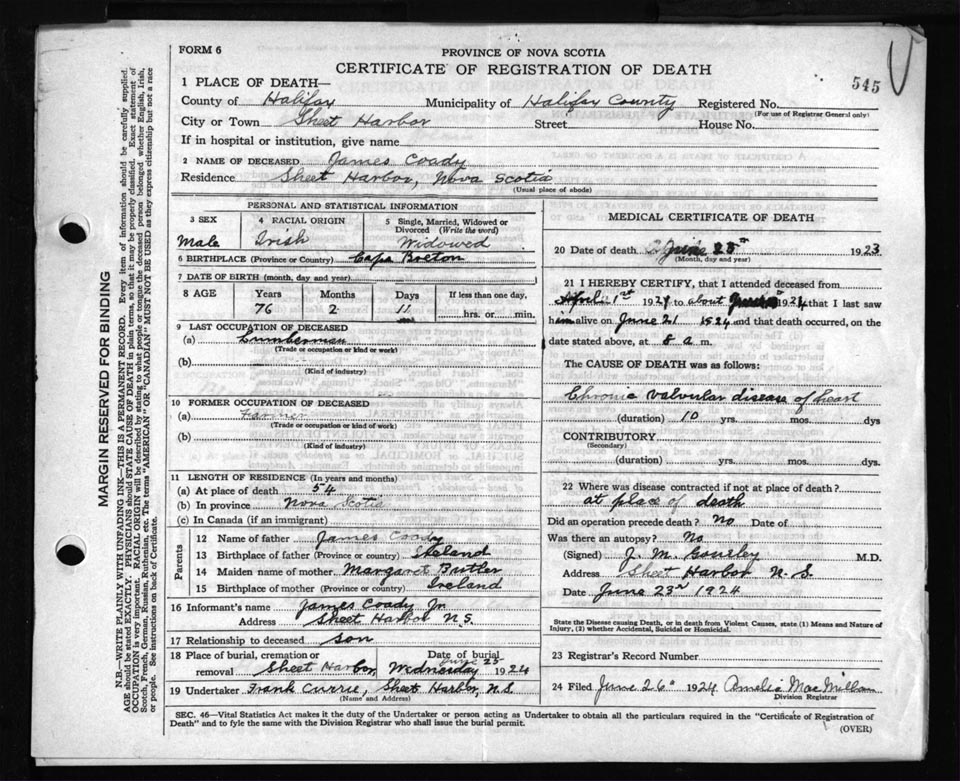 FORM 6
PROVINCE OF NOVA SCOTIA
CERTIFICATE OF REGISTRATION OF DEATH
545
1 PLACE OF DEATH—
County of Halifax Municipality of Halifax County Registered No.
(For use of Registrar General only)
City or Town Sheet Harbor Street House No.
If in hospital or institution, give name
2 NAME OF DECEASED James Coady
Residence Sheet Harbor, Nova Scotia
(Usual place of abode)
PERSONAL AND STATISTICAL INFORMATION
3 SEX 4 RACIAL ORIGIN 5 Single, Married, Widowed or Divorced (Write the word)
Male Irish Widowed
6 BIRTHPLACE (Province or Country) Cape Breton
7 DATE OF BIRTH (month, day and year)
8 AGE Years Months Days If less than one day,
76 2 11 hrs. or min.
9 LAST OCCUPATION OF DECEASED
(a) Lumberman
(Trade or occupation or kind or work)
(b)
(Kind of industry)
10 FORMER OCCUPATION OF DECEASED
(a) Farmer
(Trade or occupation or kind of work)
(b)
(Kind of industry)
11 LENGTH OF RESIDENCE (In years and months)
(a) At place of death 54
(b) In province Nova Scotia
(c) In Canada (if an immigrant)
Parents
12 Name of father James Coady
13 Birthplace of father (Province or country) Ireland
14 Maiden name of mother Margaret Butler
15 Birthplace of mother (Province or country) Ireland
16 Informant's name James Coady Jr
Address Sheet Harbor N.S.
17 Relationship to deceased son
18 Place of burial, cremation or removal Sheet Harbor, Date of burial Wednesday June 25 1924
19 Undertaker Frank Currie, Sheet Harbor, N.S.
(Name and Address)
MEDICAL CERTIFICATE OF DEATH
20 Date of death June 23 1923
(Month, day and year)
21 I HEREBY CERTIFY, that I attended deceased from
April 1st 192 to about 1924 that I last saw
him alive on June 21 1924 and that death occurred, on
the date stated above, at 8 a. m.
The CAUSE OF DEATH was as follows:
Chronic valvular disease of heart
(duration) 10 yrs. mos. dys
CONTRIBUTORY
(Secondary)
(duration) yrs. mos. dys.
22 Where was disease contracted if not at place of death?
at place of death
Did an operation precede death? No Date of
Was there an autopsy? No
(Signed) J. M. Gourley M.D.
Address Sheet Harbor N.S.
Date June 23rd 1924
State the Disease causing Death, or in death from Violent Causes, state (1) Means and Nature of
Injury, (2) whether Accidental, Suicidal or Homicidal.
23 Registrar's Record Number
24 Filed June 26 1924 Amelia MacMillan
Division Registrar
SEC. 46—Vital Statistics Act makes it the duty of the Undertaker or person acting as Undertaker to obtain all the particulars required in the "Certificate of Registration of
Death" and to fyle the same with the Division Registrar who shall issue the burial permit.
(OVER)
MARGIN RESERVED FOR BINDING
N.B.—WRITE PLAINLY WITH UNFADING INK—THIS IS A PERMANENT RECORD. Every item of information should be carefully supplied.
AGE should be stated EXACTLY. PHYSICIANS should STATE CAUSE OF DEATH in plain terms, so that it may be properly classified. Exact statement of
OCCUPATION is very important. RACIAL ORIGIN will be described by stating to what people or tongue the deceased person belonged whether English, Irish,
Scotch, French, German, Russian, Ruthenian, etc. The terms "AMERICAN" OR "CANADIAN" MUST NOT BE USED as they express citizenship but not a race
or people. See instructions on back of Certificate.